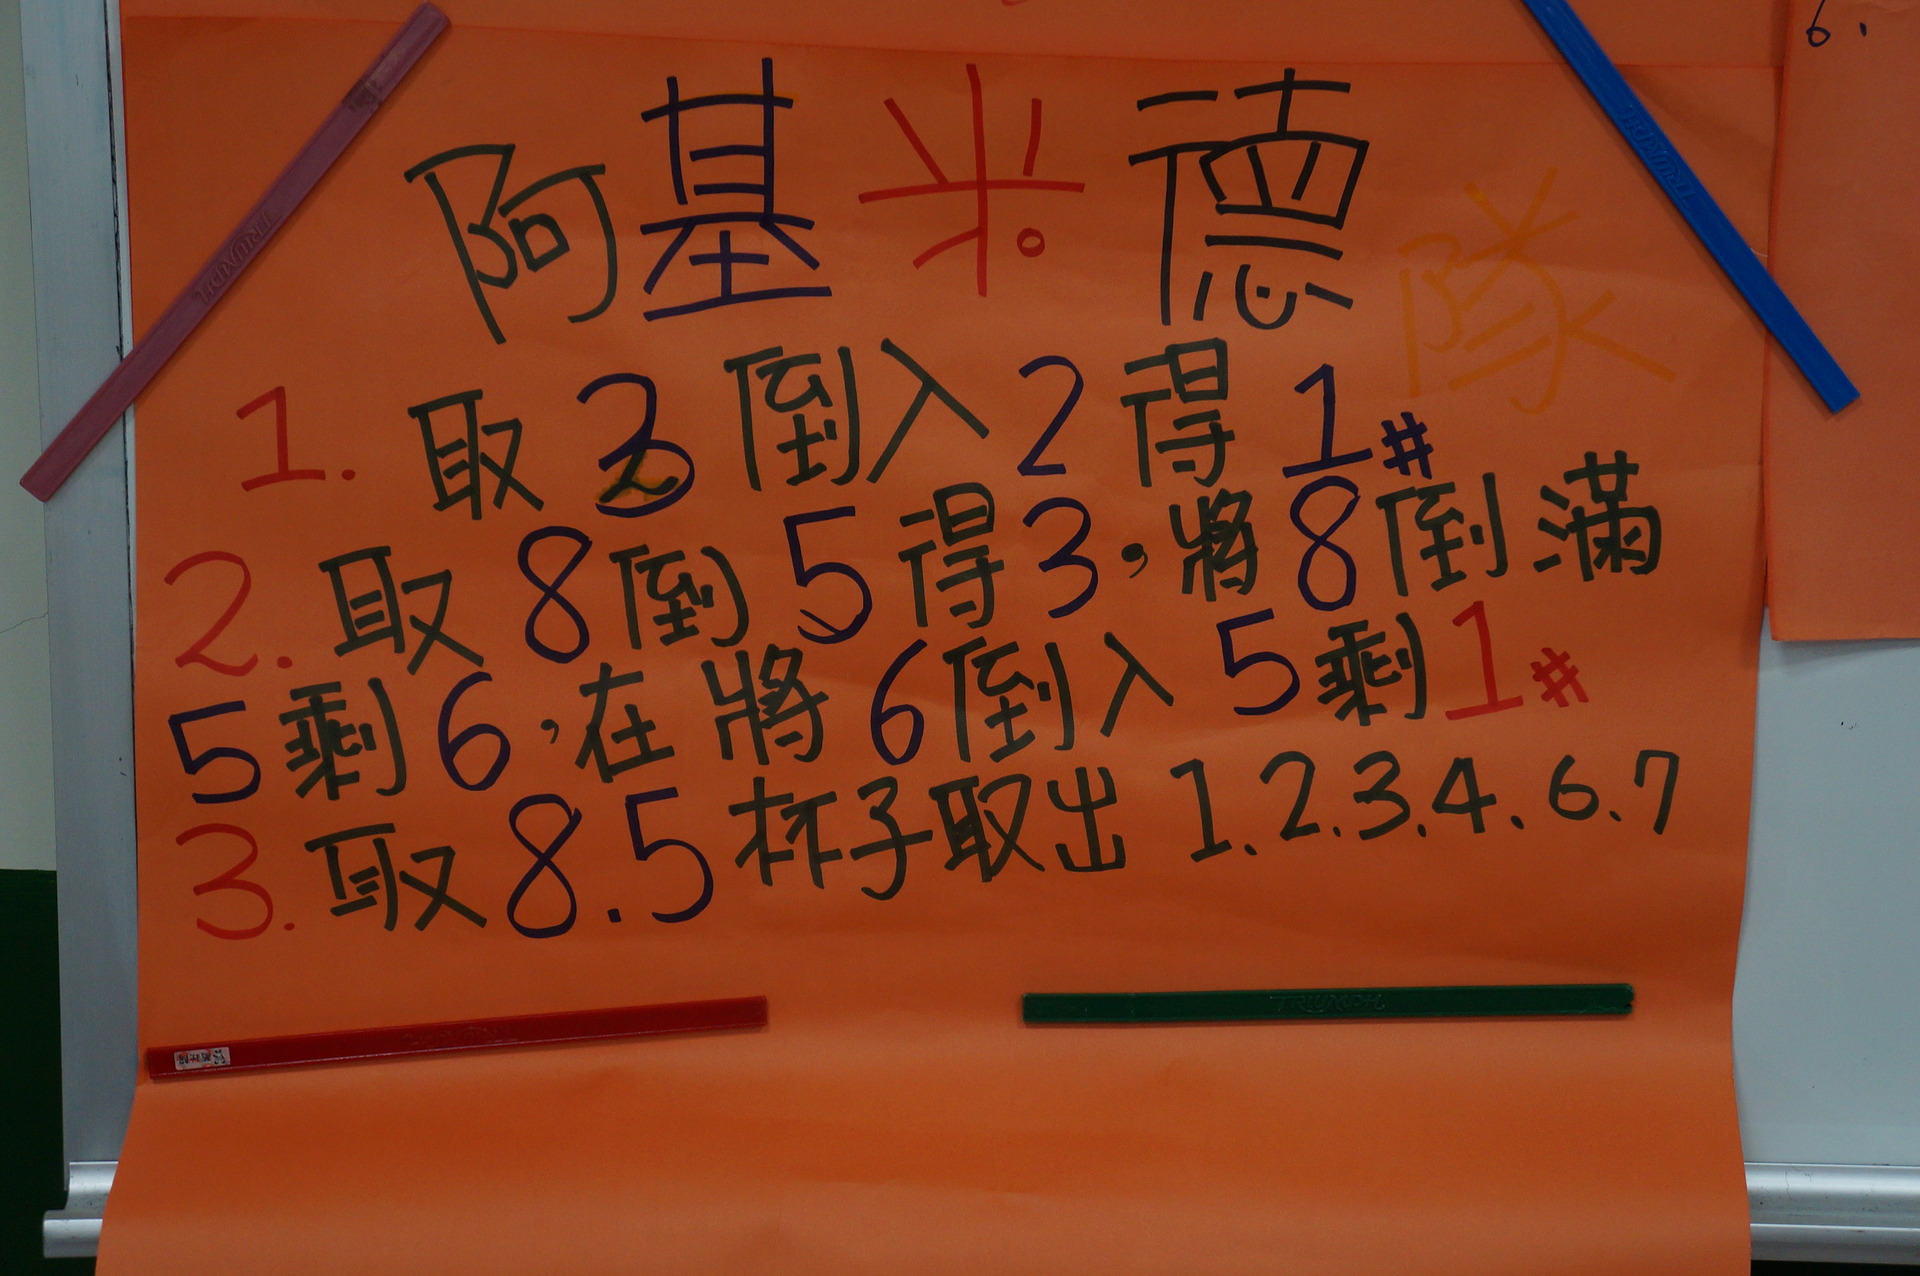 阿基米德隊
1. 取3倒入2得1#
2. 取8倒5得3，將8倒滿
5剩6，在將6倒入5剩1#
3. 取8.5杯子取出1.2.3.4.6.7
6.
TRIUMPH
TRIUMPH
TRIUMPH